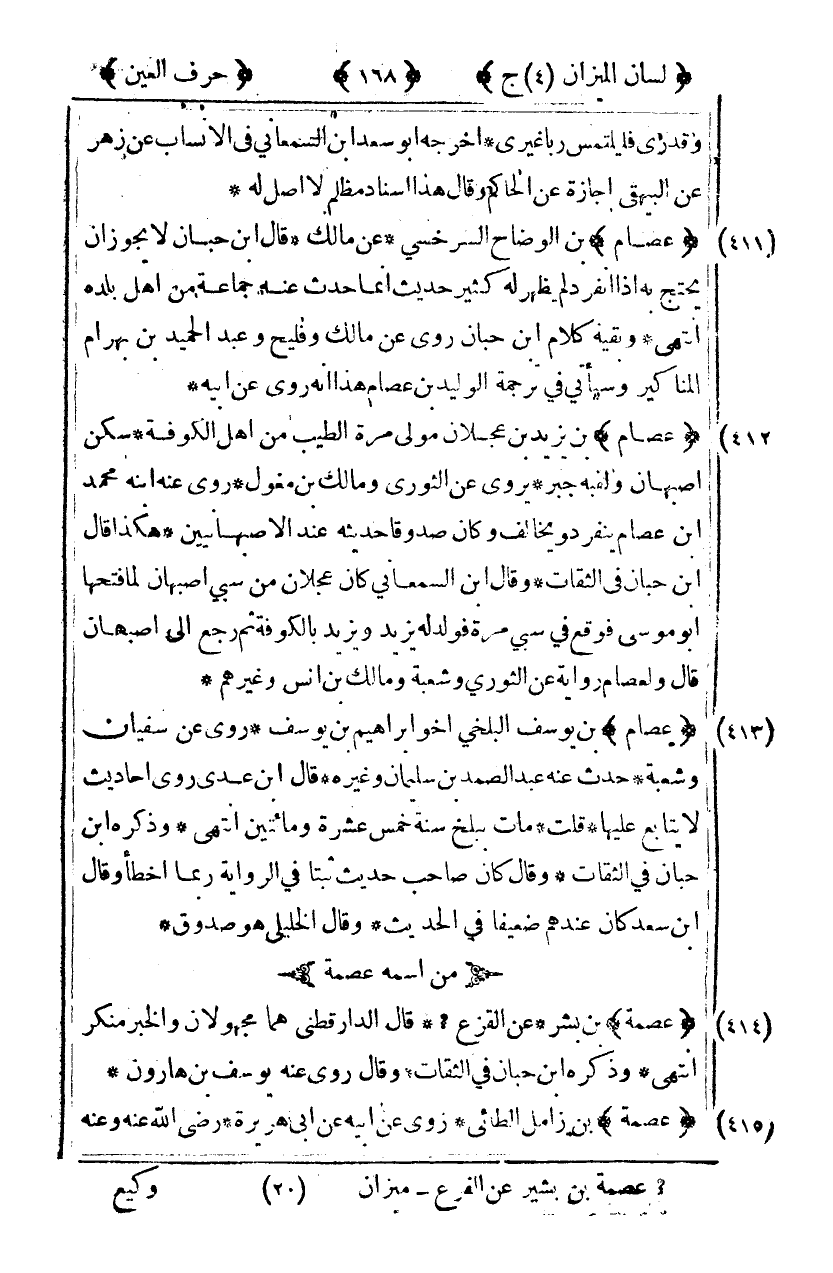 ﴿ لسان الميزان (٤) ج ﴾ ﴿ ١٦٨ ﴾ ﴿ حرف العين ﴾
وقدرى فليلتمس ربا غيرى * اخرجه ابو سعد ابن السمعاني فى الانساب عن زهر
عن البيهقى اجازة عن الحاكم وقال هذا اسناد مظلم لا اصل له *
(٤١١) ﴿ عصام ﴾ بن الوضاح السرخسي * عن مالك * قال ابن حبان لا يجوز ان
يحتج به اذا انفرد لم يظهر له كثير حديث انما حدث عنه جماعة من اهل بلده
انتهى * وبقية كلام ابن حبان روى عن مالك وفليح وعبد الحميد بن بهرام
المناكير وسيأتي في ترجمة الوليد بن عصام هذا انه روى عن ابيه *
(٤١٢) ﴿ عصام ﴾ بن يزيد بن عجلان مولى مرة الطيب من اهل الكوفة * سكن
اصبهان ولقبه جبر * يروى عن الثورى ومالك بن مغول * روى عنه ابنه محمد
ابن عصام ينفرد ويخالف وكان صدوقا حديثه عند الاصبهانيين * هكذا قال
ابن حبان فى الثقات * وقال ابن السمعاني كان عجلان من سبي اصبهان لما فتحها
ابو موسى فوقع في سبي مرة فولد له يزيد ويزيد بالكوفة ثم رجع الى اصبهان
قال ولعصام رواية عن الثوري وشعبة ومالك بن انس وغيرهم *
(٤١٣) ﴿ عصام ﴾ بن يوسف البلخي اخو ابراهيم بن يوسف * روى عن سفيان
وشعبة * حدث عنه عبد الصمد بن سليمان وغيره * قال ابن عدى روى احاديث
لا يتابع عليها * قلت * مات ببلخ سنة خمس عشرة ومائتين انتهى * وذكره ابن
حبان في الثقات * وقال كان صاحب حديث ثبتا في الرواية ربما اخطأ وقال
ابن سعد كان عندهم ضعيفا في الحديث * وقال الخليلي هو صدوق *
﴿ من اسمه عصمة ﴾
(٤١٤) ﴿ عصمة ﴾ بن بشر * عن القزع ? * قال الدارقطنى هما مجهولان والخبر منكر
انتهى * وذكره ابن حبان في الثقات * وقال روى عنه يوسف بن هارون *
(٤١٥) ﴿ عصمة ﴾ بن زامل الطائى * روى عن ابيه عن ابى هريرة * رضى الله عنه وعنه
? عصمة بن بشير عن الفرع - ميزان (٢٠) وكيع